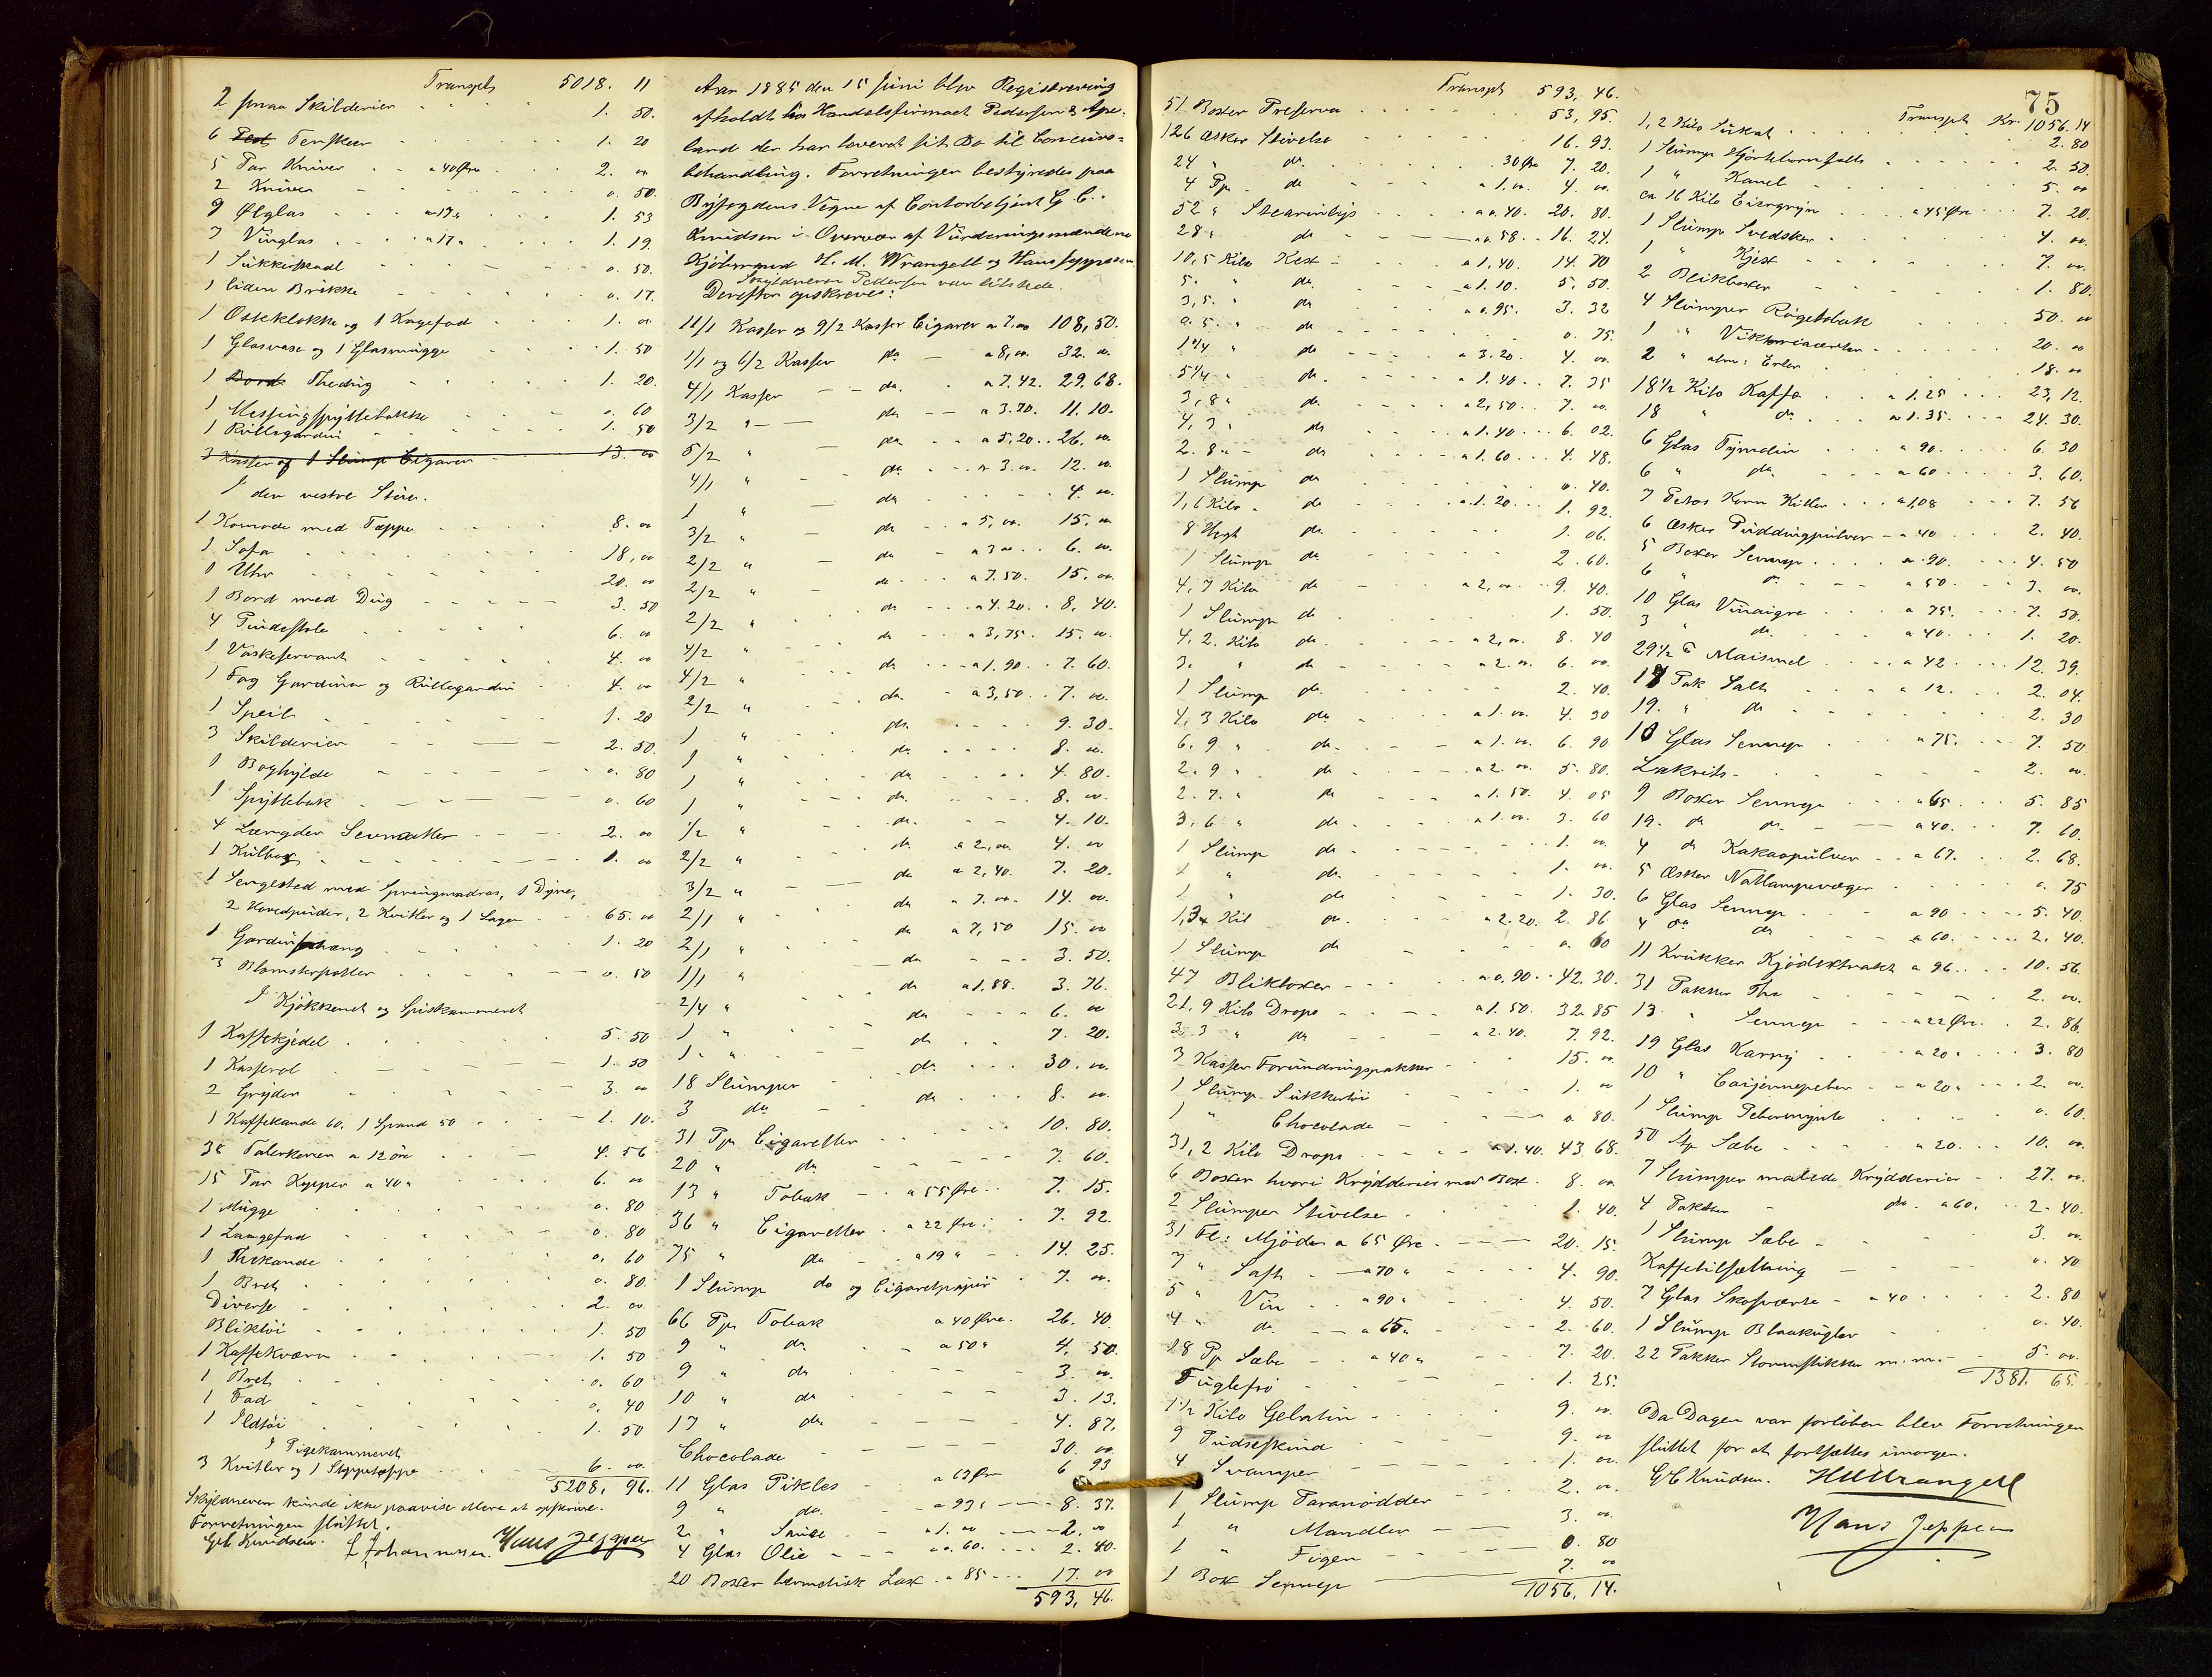 Transpt 5018. 11
2 smaa Skilderier 1. 50.
6 Theskeer 1. 20
5 Par Kniver a 40 Øre 2. 00
2 Kniver 0. 50.
9 Ølglas a 17 " 1. 53
7 Vinglas a 17 " 1. 19
1 Sukkerskaal 0. 50.
1 liden Brikke 0. 17.
1 Osteklokke og 1 Kagefad 1. 00
1 Glasvase og 1 Glasmugge 1. 50
1 Bord Thedug 1. 20.
1 Messingspyttebakke 0. 60
1 Rullegardin 1. 50
3 Kasser af 1 Slump Cigarer 13. 00
I den vestre Stue.
1 Komode med Tæppe 8. 00
1 Sofa 18, 00
1 Uhr 20. 00
1 Bord med Dug 3. 50
4 Pindestole 6. 00
1 Vaskeservant 4. 00
1 Fag Gardiner og Rullegardin 4. 00
1 Speil 1. 20
3 Skilderier 2. 50.
1 Boghylde 0. 80
1 Spyttebak 0. 60
4 Længder Sevmatter 2. 00
1 Kulbox 1. 00
1 Sengested med Springmadras, 1 Dyne,
2 Hovedpuder, 2 Kvitler og 1 Lagen 65. 00
1 Gardinophæng 1. 20
3 Blomsterpotter 0. 50
I Kjøkkenet og Spiskammeret
1 Kaffekjedel 5. 50
1 Kasserol 1. 50
2 Gryder 3. 00
1 Kaffekande 60. 1 Spand 50 1. 10.
38 Talerkener a 12 øre 4. 56
15 Par Kopper a 40 " 6. 00
1 Mugge 0. 80
1 Langefad 0. 80
1 Thekande 0. 60
1 Bret 0. 80.
Diverse 2. 00
Bliktøi 1. 50
1 Kaffekværn 1. 50
1 Bret 0. 60
1 Fad 0. 40
1 Ildtøi 1. 50
I Pigekammeret
3 Kvitler og 1 Stoppetæppe 6. 00
5208, 96.
Skyldneren kunde ikke paavise Mere at opskrive.
Forretningen sluttet.
GC Knudsen. L Johannesen. Hans Jeppesen
Aar 1885 den 15 Juni blev Registrering
afholdt hos Handelsfirmaet Pedersen & Ape-
land der har leveret sit Bo til Concurs-
behandling. Forretningen bestyredes paa
Byfogdens Vegne af Contorbetjent G. C.
Knudsen i Overvær af Vurderingsmændene
Kjøbmand H. M. Wrangell og Hans Jeppesen
Skyldneren Pedersen var tilstede.
Derefter opskreves:
11/1 Kasser og 9/2 Kasser Cigarer a 7.00 108,50.
1/1 og 6/2 Kasser do a 8,00. 32. 00.
4/1 Kasser do. a 7.42. 29.68.
3/2 " do a 3.70. 11.10.
5/2 " do a 5,20. 26. 00
4/1 " do. a 3.00. 12. 00
1 " do 4. 00.
3/2 " do a 5,00. 15. 00
2/2 " do a 3 00. 6. 00.
2/2 " do a 7.50. 15. 00.
2/2 " do a 4.20. 8, 40.
4/2 " do a 3,75. 15. 00.
4/2 " do a 1.90. 7. 60.
2/2 " do a 3,50. 7. 00.
1 " do 9. 30.
1 " do 8. 00.
1 " do 4. 80.
1 " do. 8. 00.
1/2 " do. 4. 10.
2/2 " do a 2,00. 4. 00
3/2 " do a 2,40. 7. 20.
2/1 " do a 7.00. 14. 00.
2/1 " do a 7,50 15. 00
1/1 " do 3. 50.
2/4 " do a 1,88. 3. 76.
1 " do 6. 00
1 " do 7. 20.
18 Slumper do. 30. 00.
3 do do 8. 00.
31 Pp Cigaretter 10. 80.
20 " do 7. 60.
13 " Tobak a 55 Øre 7. 15.
36 " Cigaretter a 22 Øre 7. 92.
75 " do a 19 " 14. 25.
1 Slump do og Cigaretpapir 7. 00.
66 Pp Tobak a 40 Øre 26. 40.
9 " do a 50 " 4, 50.
9 " do 3. 00.
10 " do 3. 13.
17 " do 4. 87.
Chocolade 30. 00
11 Glas Pikles a 63 Øre 6 93
9 " do. a 93 " 8. 37.
2 " Sauce a 1. 00 2. 00
4 Glas Olie a 0. 60. 2. 40.
20 Boxer hermetisk Lax a 85 17. 00
593, 46.
75
Transpt 593, 46.
51 Boxer Preserva 53, 95.
126 Æsker Stivelse 16. 93.
24 " do. 30 Øre 7. 20.
4 Pp. do a 1.00. 4. 00.
52 " Stearinlys a 0.40. 20. 80.
28 " do a 0.58. 16. 24.
10,5 Kilo Kex a 1,40. 14. 70
5. " do. a 1.10. 5. 50.
3,5. " do a 0.95. 3. 32
0.5. " do 0. 75.
1 1/4 " do a 3.20. 4. 00.
5 1/4 " do. a 1.40. 7. 35
3,8 " do. a 2,50. 7. 00.
4,3 " do a 1.40. 6. 02.
2.8 " do a 1.60. 4. 48.
1 Slump do 0. 40.
1,6 Kilo do a 1.20. 1. 92.
8 Hegt do. 1. 06.
1 Slump do 2. 60.
4,7 Kilo do a 2,00. 9. 40.
1 Slump do 1. 50.
4.2. Kilo do a 2,00. 8. 40
3. " do a 2.00. 6. 00.
1 Slump do. 2. 40.
4,3 Kilo do a 1.00. 4. 30
6.9 " do. a 1.00. 6. 90
2.9 " do a 2.00. 5. 80.
2.7. " do a 1.50. 4. 05
3,6 " do. a 1.00. 3. 60
1 Slump do 1. 00.
1 " do. 1. 00.
1 " do 1. 30.
1,3 Kil do. a 2.20. 2. 86
1 Slump do 0. 60
47 Blikboxer a 0,90. 42.30.
21.9 Kilo Drops a 1.50. 32.85
3.3 " do a 2.40. 7.92.
3 Kasser Forundringspakker 15. 00
1 Slump Sukkertøi 1. 00
1 " Chocolade 0. 80.
31,2 Kilo Drops a 1.40. 43.68.
6 Boxer hvori Krydderier med Box 8. 00
2 Slumper Stivelse 1. 40.
31 Fl: Mjøder a 65 Øre 20. 15.
7 " Saft a 70 " 4. 90.
5 " Vin a 90 " 4. 50.
4 " do. a 65 " 2. 60.
18 Pp Sæbe a 40 " 7. 20.
Fuglefrø 1. 25.
1 1/2 Kilo Gelatin 9. 00.
9 Pudseskind 9. 00
4 Svamper 1. 00.
1 Slump Paranødder 2. 00.
1 " Mandler 3. 00.
1 " Figen 0. 80
1 Box Sennep 7. 00
1056, 14.
Transpt Kr. 1056.14
1,2 Kilo Sukat 2. 80
1 Slump Hjortetornsalt 2. 50.
1 " Kanel 5. 00
ca 16 Kilo Eiergryn a 45 Øre 7. 20.
1 Slump Svedsker 4. 00.
1 " Kjex 7. 00.
2 Blikboxer 1. 80.
4 Slumper Røgetobak 50. 00
1 " Viktoriaærter 20. 00
2 " alm: Erter 18. 00
18 1/2 Kilo Kaffe a 1.25 23, 12.
18 " do a 1.35. 24. 30.
6 Glas Tymolin a 90. 6. 30
6 " do. a 60 3. 60.
7 a 1,08 7. 56
6 Æsker Puddingpulver a 40 2. 40.
5 Boxer Sennep a 90. 4. 50
6 " do a 50 3. 00.
10 Glas Vinaigre a 75. 7. 50.
3 " do. a 40. 1. 20.
29 1/2 ℔ Maismel a 42 12. 39.
17 Pak Salt a 12. 2. 04.
19. " do 2. 30
10 Glas Sennep a 75. 7. 50
Lakrits 2. 00.
9 Boxer Sennep a 65 5. 85
19. do do. a 40. 7. 60.
4 do Kakaopulver a 67. 2. 68.
5 Æsker Natlampevæger 0. 75
6 Glas Sennep a 90 5. 40.
4 do do a 60. 2. 40.
11 Krukker Kjødextrakt a 96. 10. 56
31 Pakker The 2. 00.
13 " Sennep a 22 Øre. 2. 86.
19 Glas Karry a 20 " 3. 80
10 " Caijennepeber a 20 " 2. 00.
1 Slump Pebermynte 0. 60.
50 St Sæbe a 20. 10. 00.
7 Slumper malede Krydderier 27. 00.
4 Pakker do. a 60. 2. 40.
1 Slump Sæbe 3. 00
Kaffetilsætning 0. 40
7 Glas Skosværte a 40 2. 80
1 Slump Blaakugler 0. 40.
22 Pakker Stormstikker m.m. 5. 00.
1381. 65.
Da Dagen var forløben blev Forretningen
sluttet for at fortsættes imorgen.
GC Knudsen. HMWrangell
Hans Jeppesen